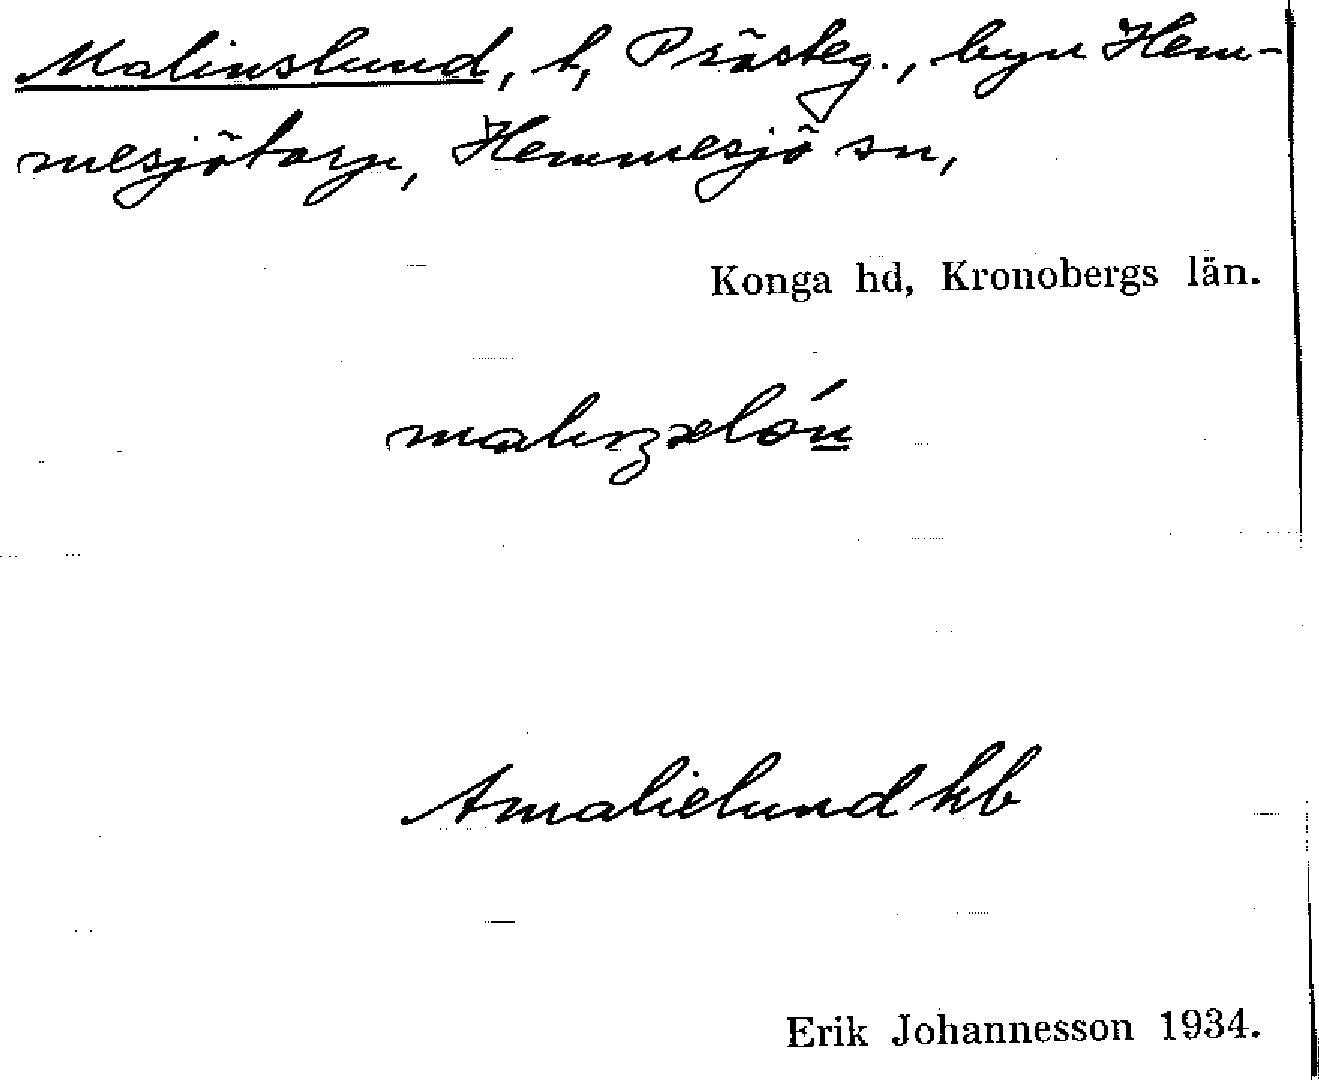 Malinslund, t, Prästeg., byn Hem-
mesjötorp, Hemmesjö sn,
Konga hd, Kronobergs län.
Amalielund kb
Erik Johannesson 1934.